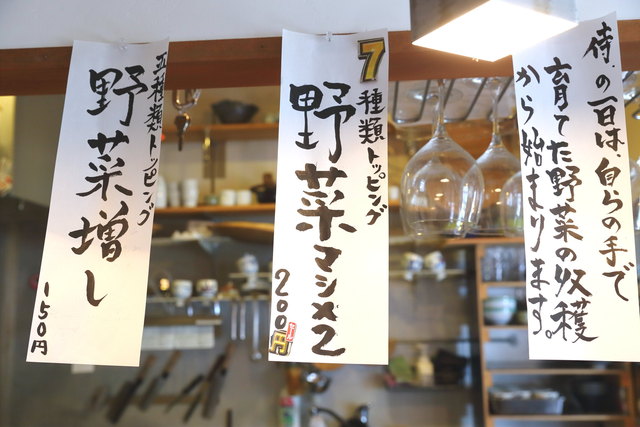 侍.の一日は、自らの手で
育てた野菜の収穫
から始まります。
7種類トッピング
野菜マシ×2
200円
五種類トッピング
野菜増し
150円